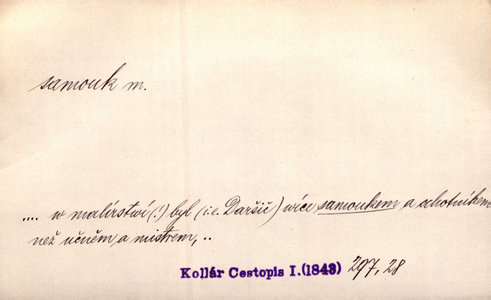 samouk m.
.... w malírstwí (!) byl (i.e. Daršič) více samoukem a ochotníkem
než učněm, a mistrem, ..
Kollár Cestopis I. (1843) 297, 28